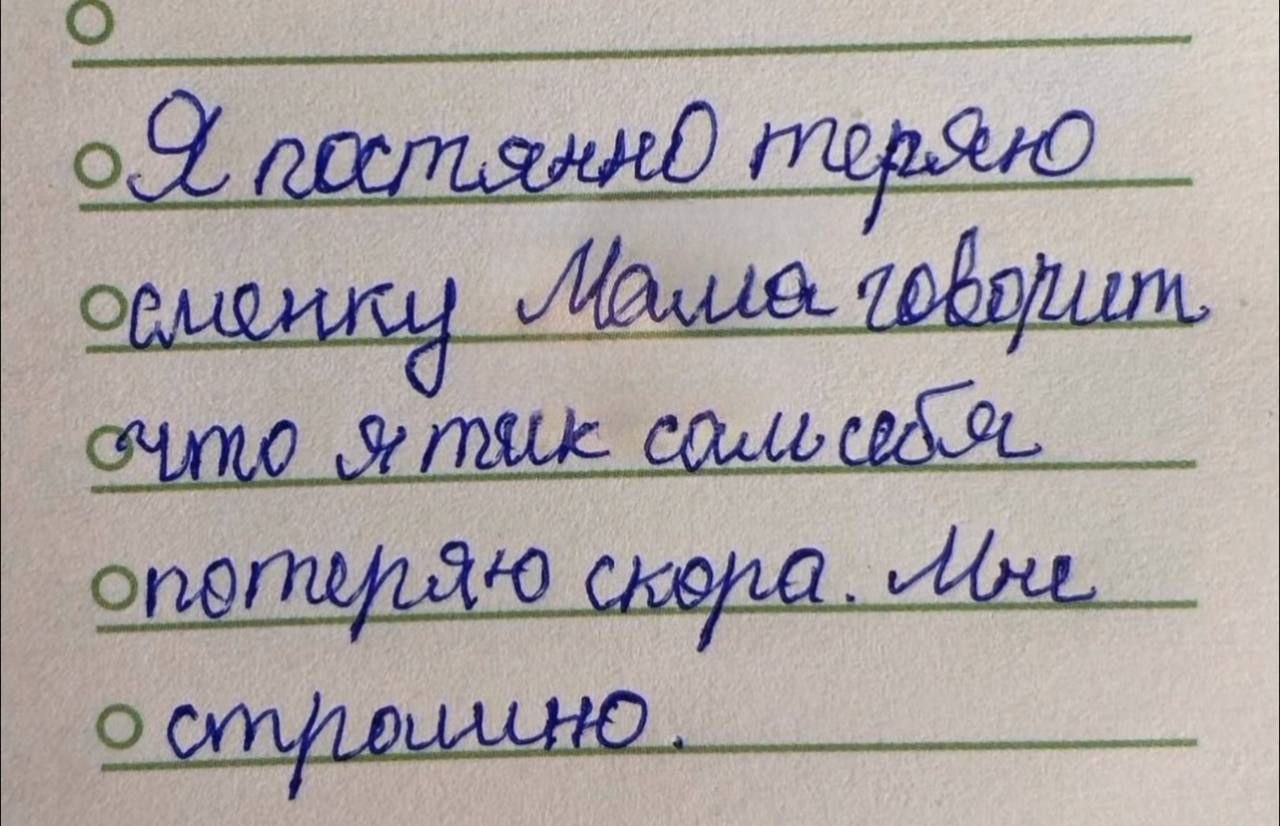 Я постянно теряю
сменку Мама говорит
что я тик сам себя
потеряю скора. Мне
страшно.